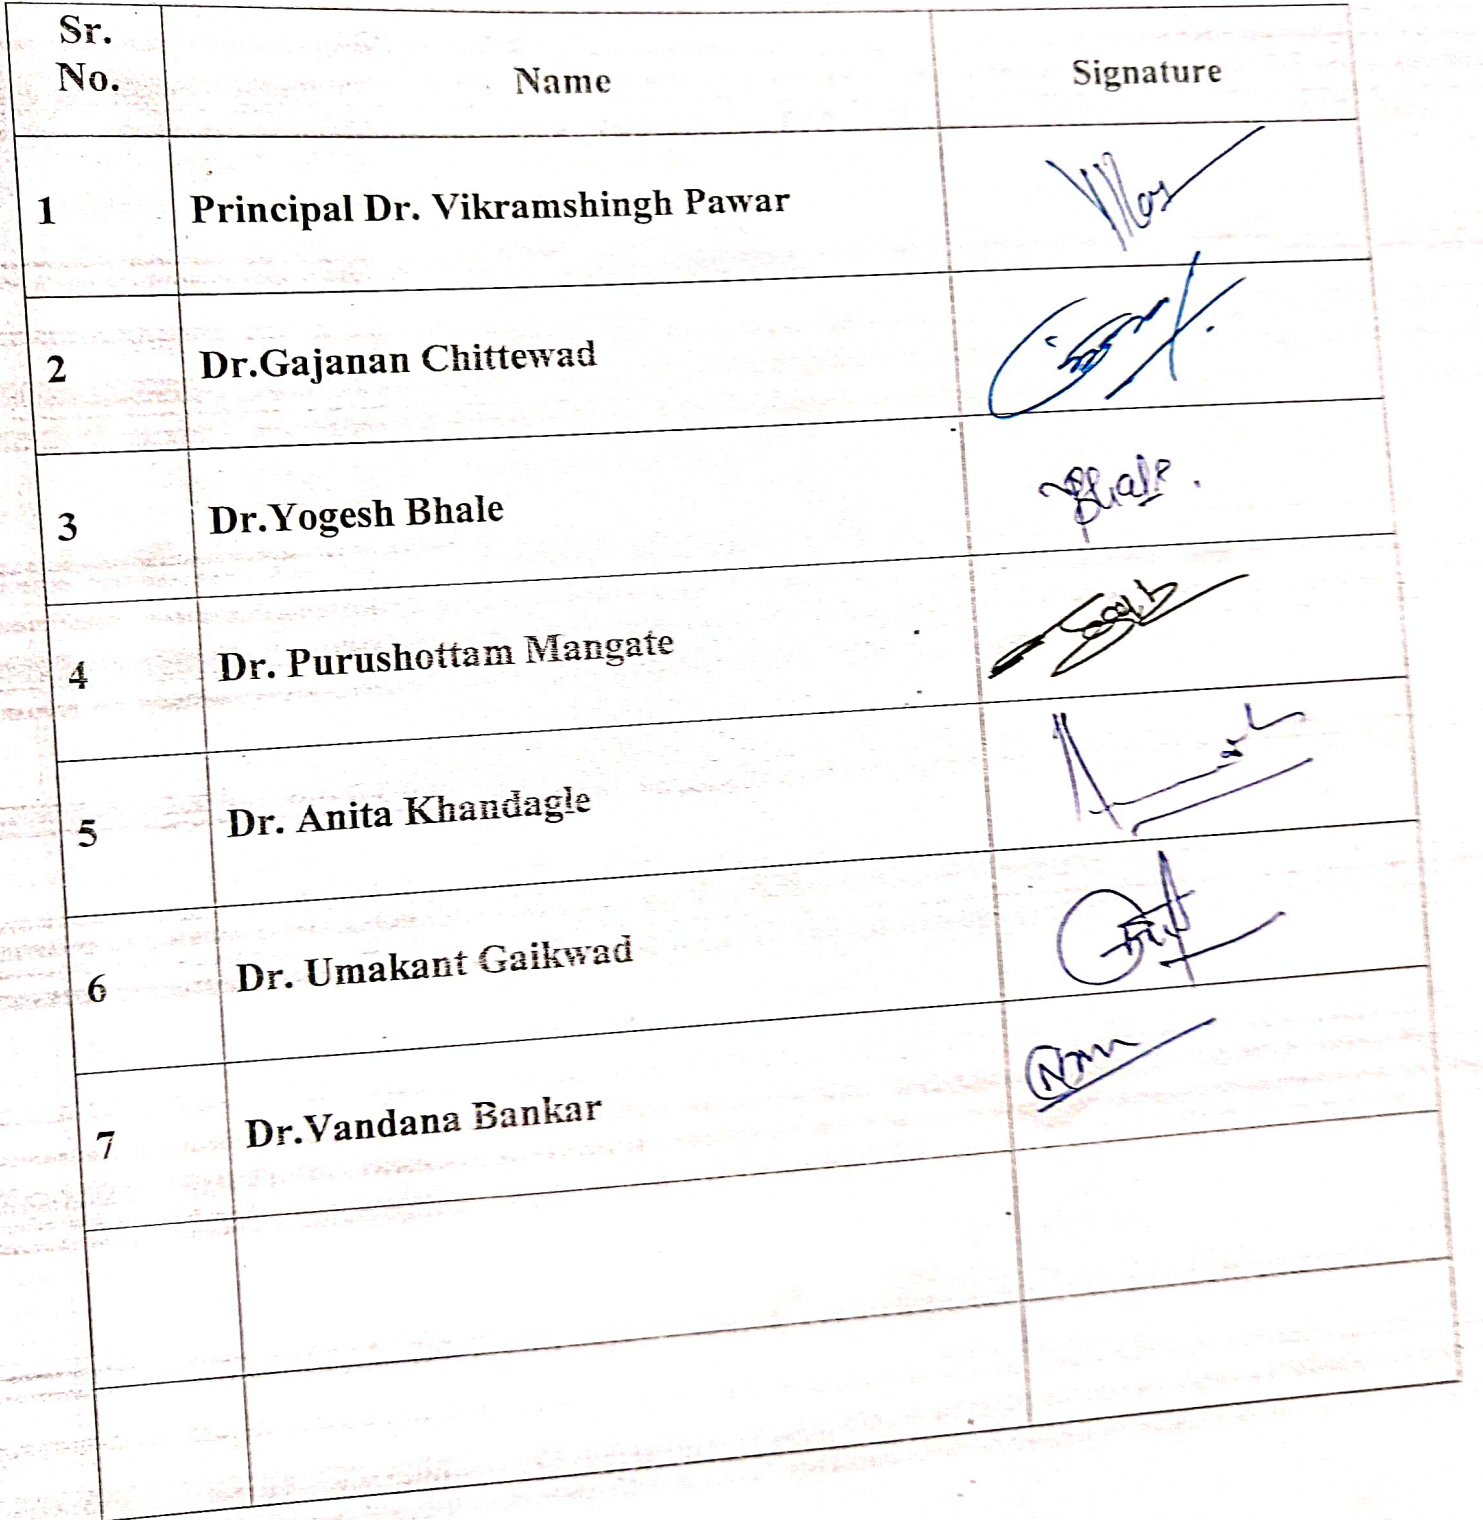 Sr.
No.
Name
Signature
1
Principal Dr. Vikramshingh Pawar
2
Dr.Gajanan Chittewad
3
Dr.Yogesh Bhale
Bhale.
4
Dr. Purushottam Mangate
5
Dr. Anita Khandagle
6
Dr. Umakant Gaikwad
7
Dr.Vandana Bankar